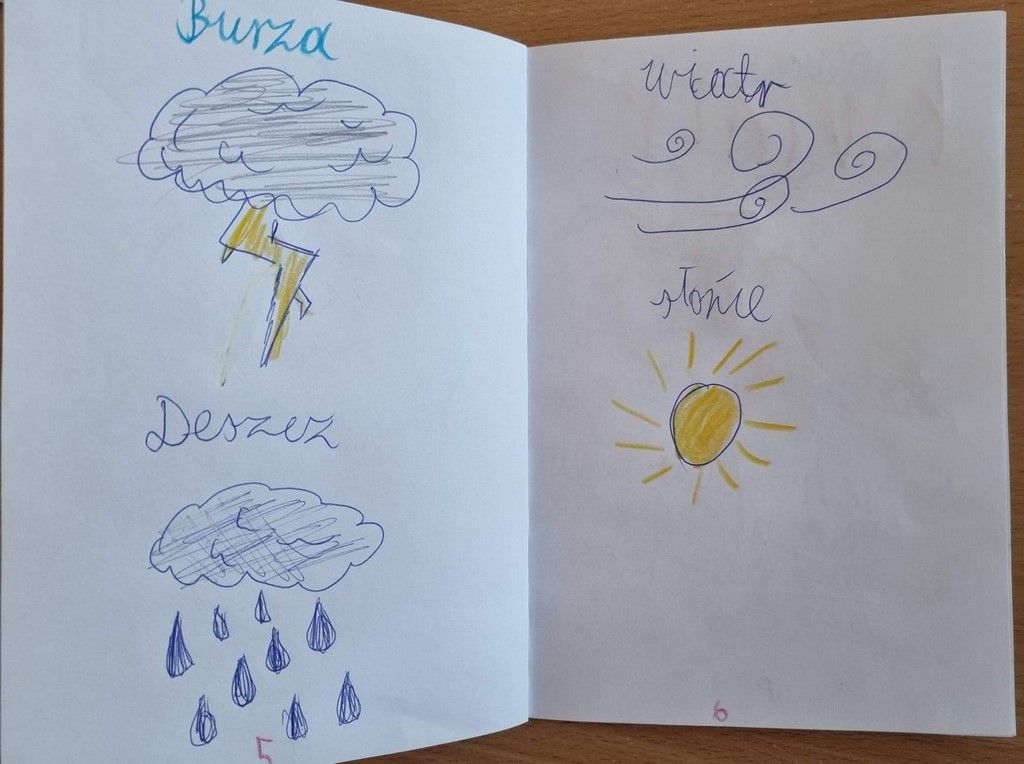 Burza
Deszcz
5
wiatr
słońce
6